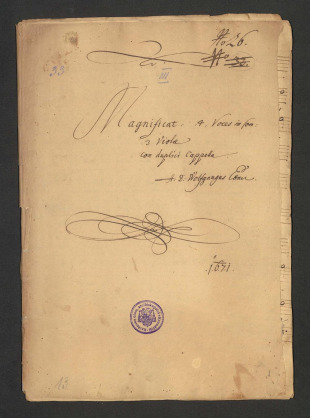 No 26.
33
III
Magnificat. 4. Voces in con
2 Viola
con duplici Cappela
A. D. Wolfgangus Ebner
1671.
13